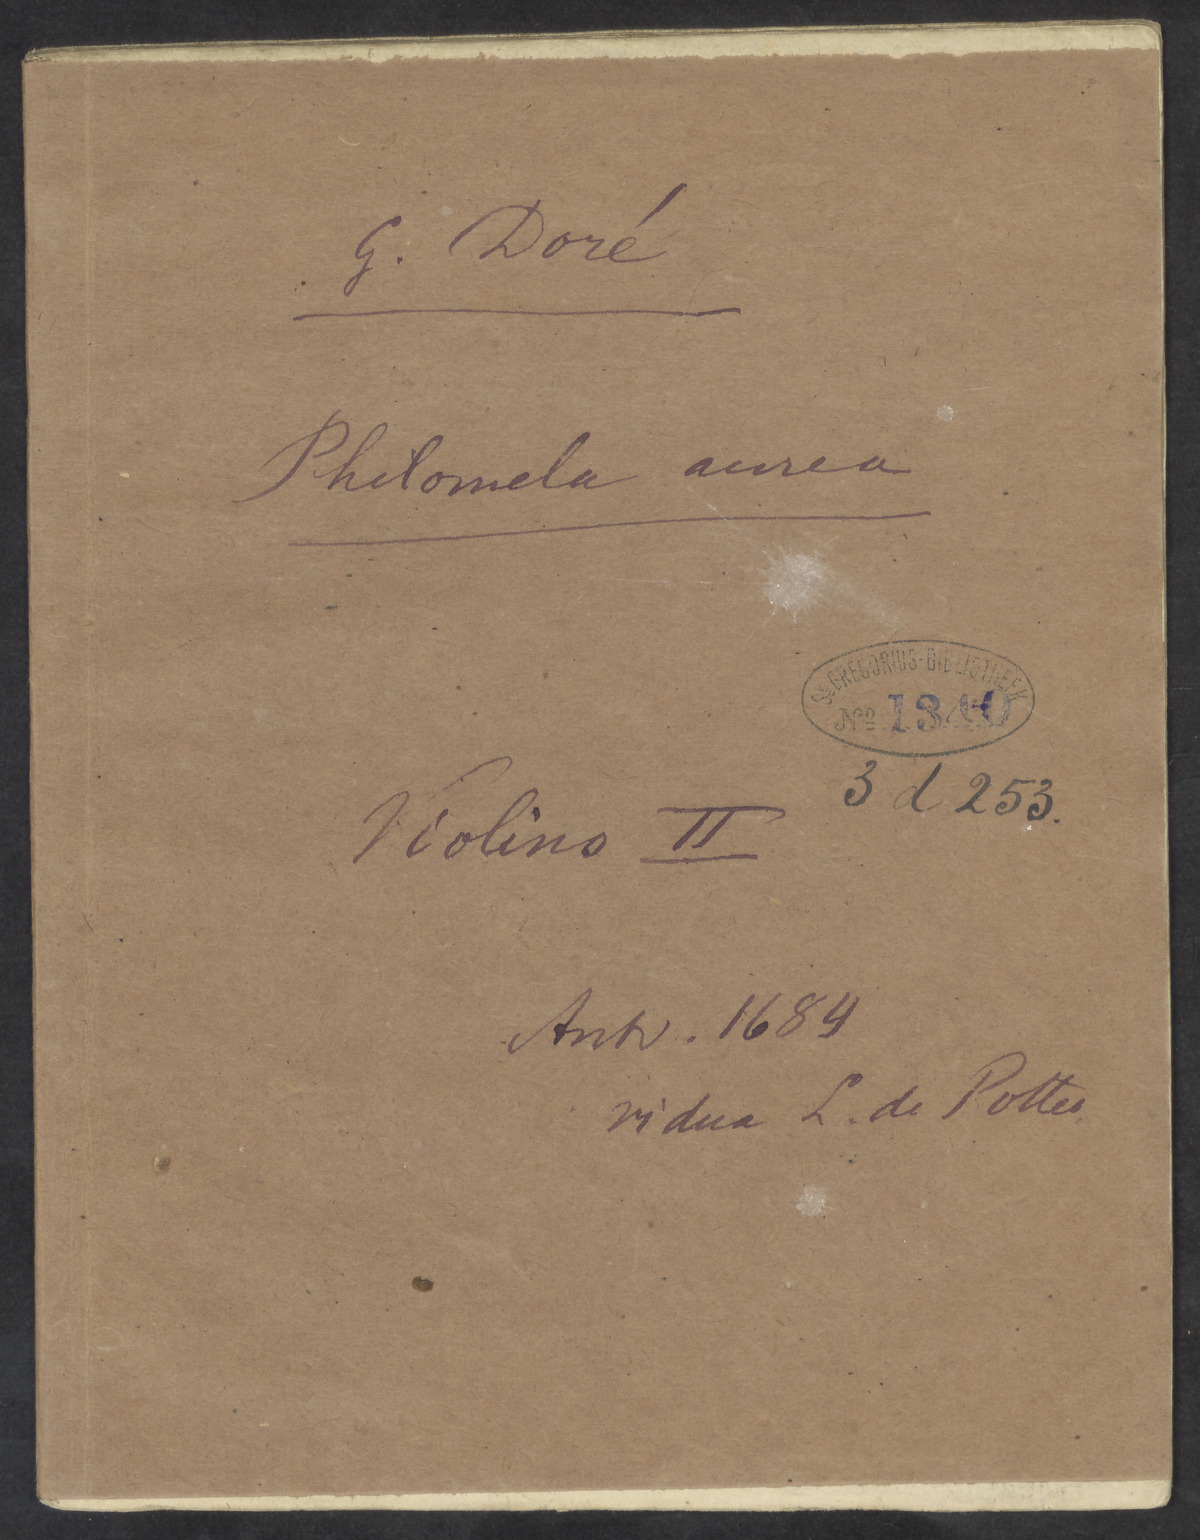 G. Doré
Philomela aurea
St GREGORIUS-BIBLIOTHEEK
No 1340
3 d 253.
Violino II
Antv. 1684
vidua L. de Potter